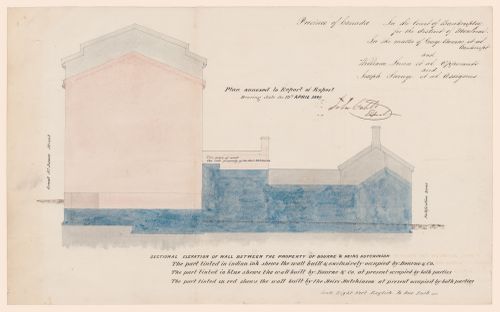 Province of Canada
In the Court of Bankruptcy
for the district of Montreal
In the matter of George Bourne et al
Bankrupt
and
William et al Opposants
and
Joseph Savage et al Assignees
Plan annexed to Report of Expert
Bearing date the APRIL
John
Expert
Great St James Street
Fortification Street
This part of wall
SECTIONAL ELEVATION OF WALL BETWEEN THE PROPERTY OF BOURNE & HEIRS HUTCHINSON
The part tinted in indian ink shews the wall built & exclusively occupied by Bourne & Co.
The part tinted in blue shews the wall built by Bourne & Co at present occupied by both parties
The part tinted in red shews the wall built by the Heirs Hutchinson at present occupied by both parties
Scale Eight Feet English to One Inch